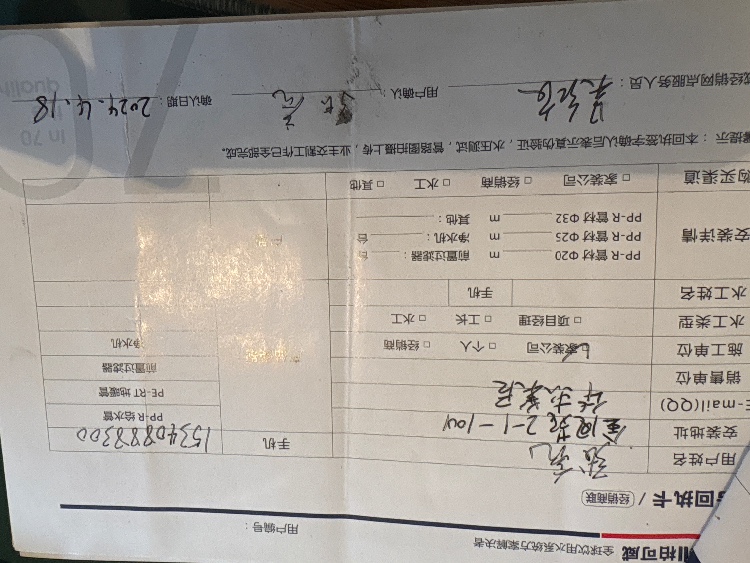 柏可威 全球饮用水系统方案解决者
用户编号：
回执卡 / 经销商联
用户姓名
手机 15340888300
安装地址 2-1-1001
PP-R 给水管
E-mail(QQ)
PE-RT 地暖管
销售单位
前置过滤器
施工单位 □ 家装公司 □ 个人 □ 经销商
净水机
水工类型 □ 项目经理 □ 工长 □ 水工
水工姓名 手机
安装详情 PP-R 管材 Φ20 m 前置过滤器： 台
PP-R 管材 Φ25 m 净水机： 台
PP-R 管材 Φ32 m 其他：
购买渠道 □ 家装公司 □ 经销商 □ 水工 □ 其他
提示：本回执签字确认后表示真伪验证，水压测试，管路图拍摄上传，业主交割工作已全部完成。
或经销网点服务人员： 用户确认： 确认日期：2024.4.18
In 70